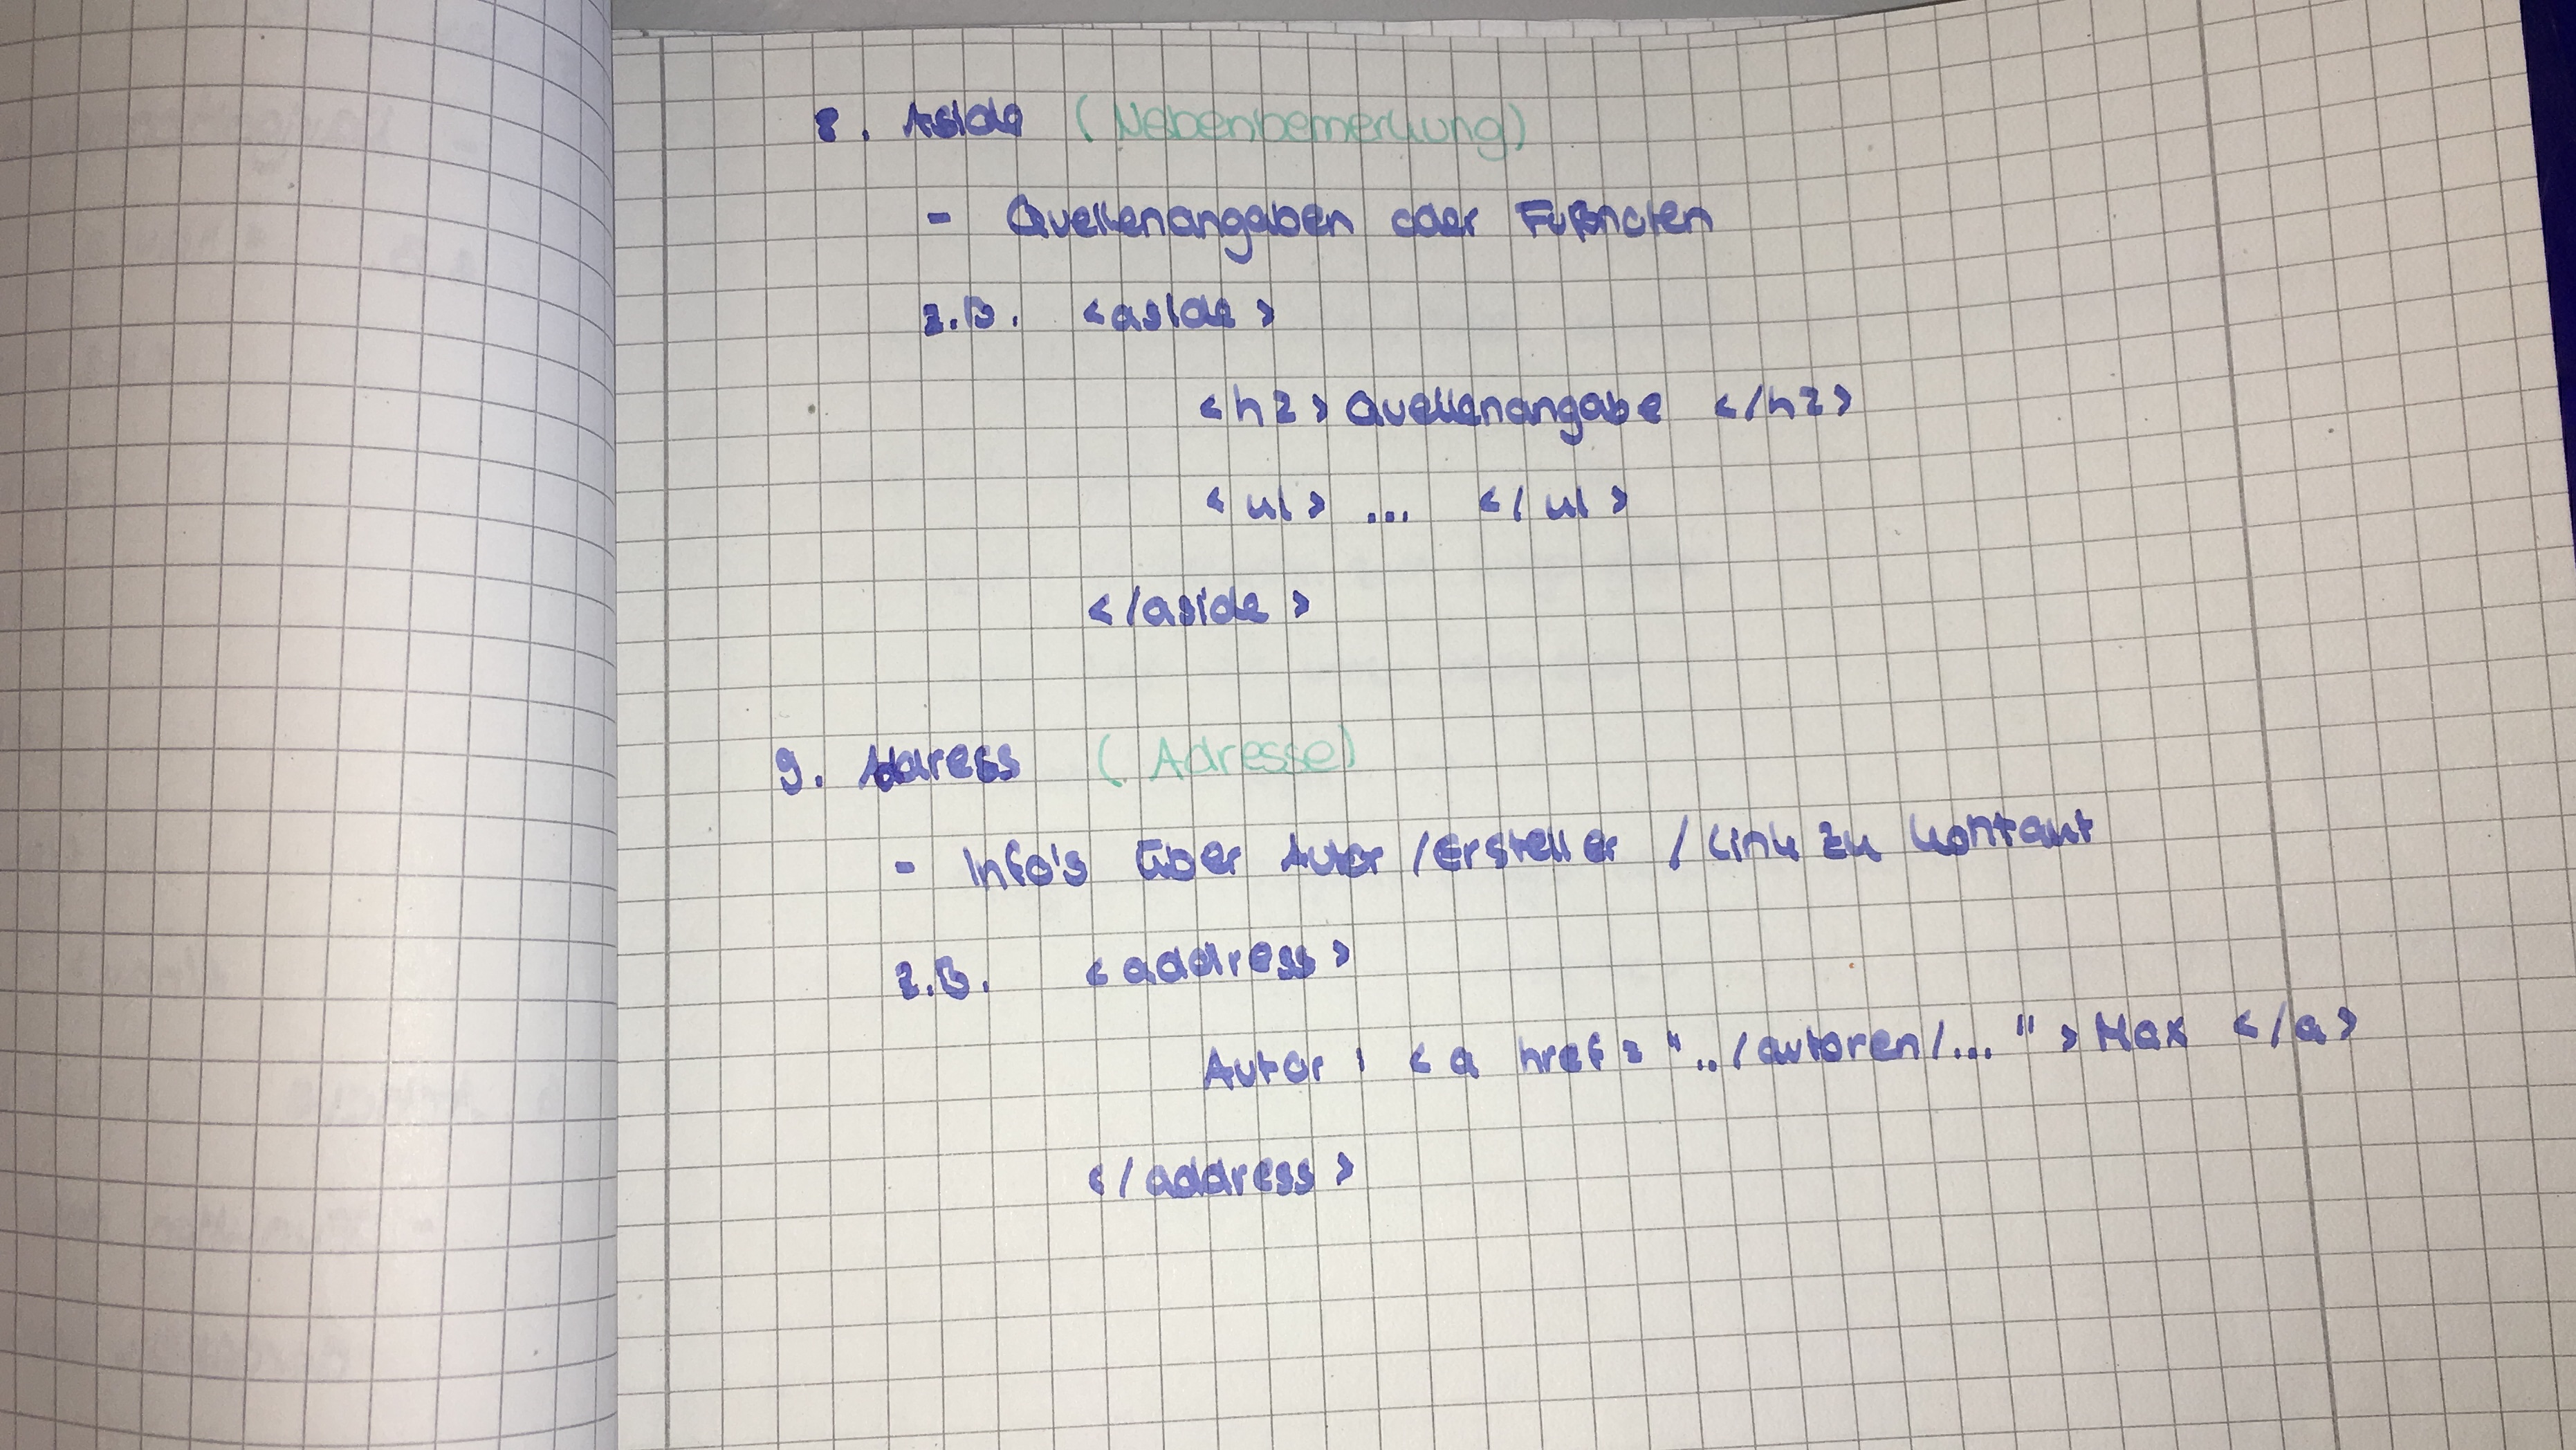 8. Aside (Nebenbemerkung)
- Quellenangaben oder Fußnoten
z.B. <aside>
<h2> Quellenangabe </h2>
<ul> ... </ul>
</aside>
9. Address (Adresse)
- Info's über Autor / Ersteller / Link zu Kontakt
z.B. <address>
Autor : <a href = "../autoren/... " > Max </a>
</address>